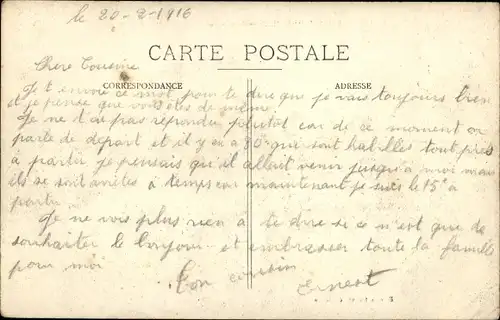 le 20-2-1916
CARTE POSTALE
Chere Cousine
CORRESPONDANCE
ADRESSE
Je t envoie ce mot pour te dire que je vais toujours bien
et je pense que vous êtes de meme
Je ne t'ai pas repondu plutot car de ce moment on
parle de depart et il y en a 80 qui sont habilles tout près
à partir je pensais qu'il allait venir jusqu'a moi mais
ils se sont arretes à temps car maintenant je suis le 15e a
partir
Je ne vois plus rien a te dire si ce n'est que de
souhaiter le bonjour et embrasser toute la famille
pour moi
Ton cousin
Ernest